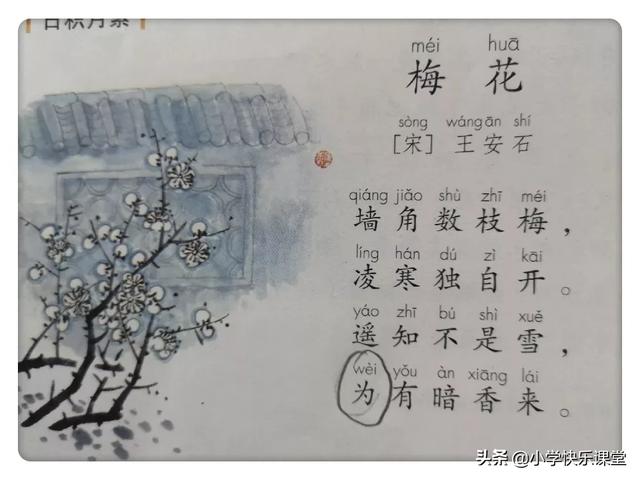 日积月累
méi huā
梅 花
sòng wáng ān shí
[宋] 王安石
qiáng jiǎo shù zhī méi
墙角数枝梅，
líng hán dú zì kāi
凌寒独自开。
yáo zhī bú shì xuě
遥知不是雪，
wèi yǒu àn xiāng lái
为有暗香来。
头条 @小学快乐课堂